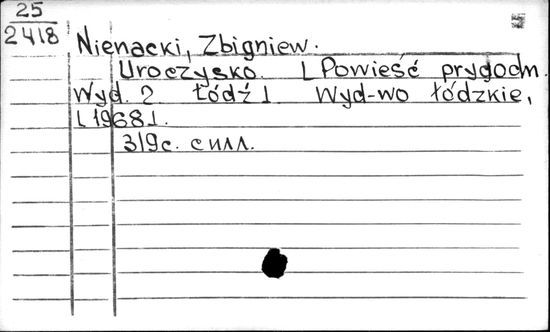 25
2418
Nienacki, Zbigniew.
Uroczysko. [Powieść prygodm.
Wyd. 2 Łódź] Wyd-wo Łódzkie,
[1968].
319c. с илл.